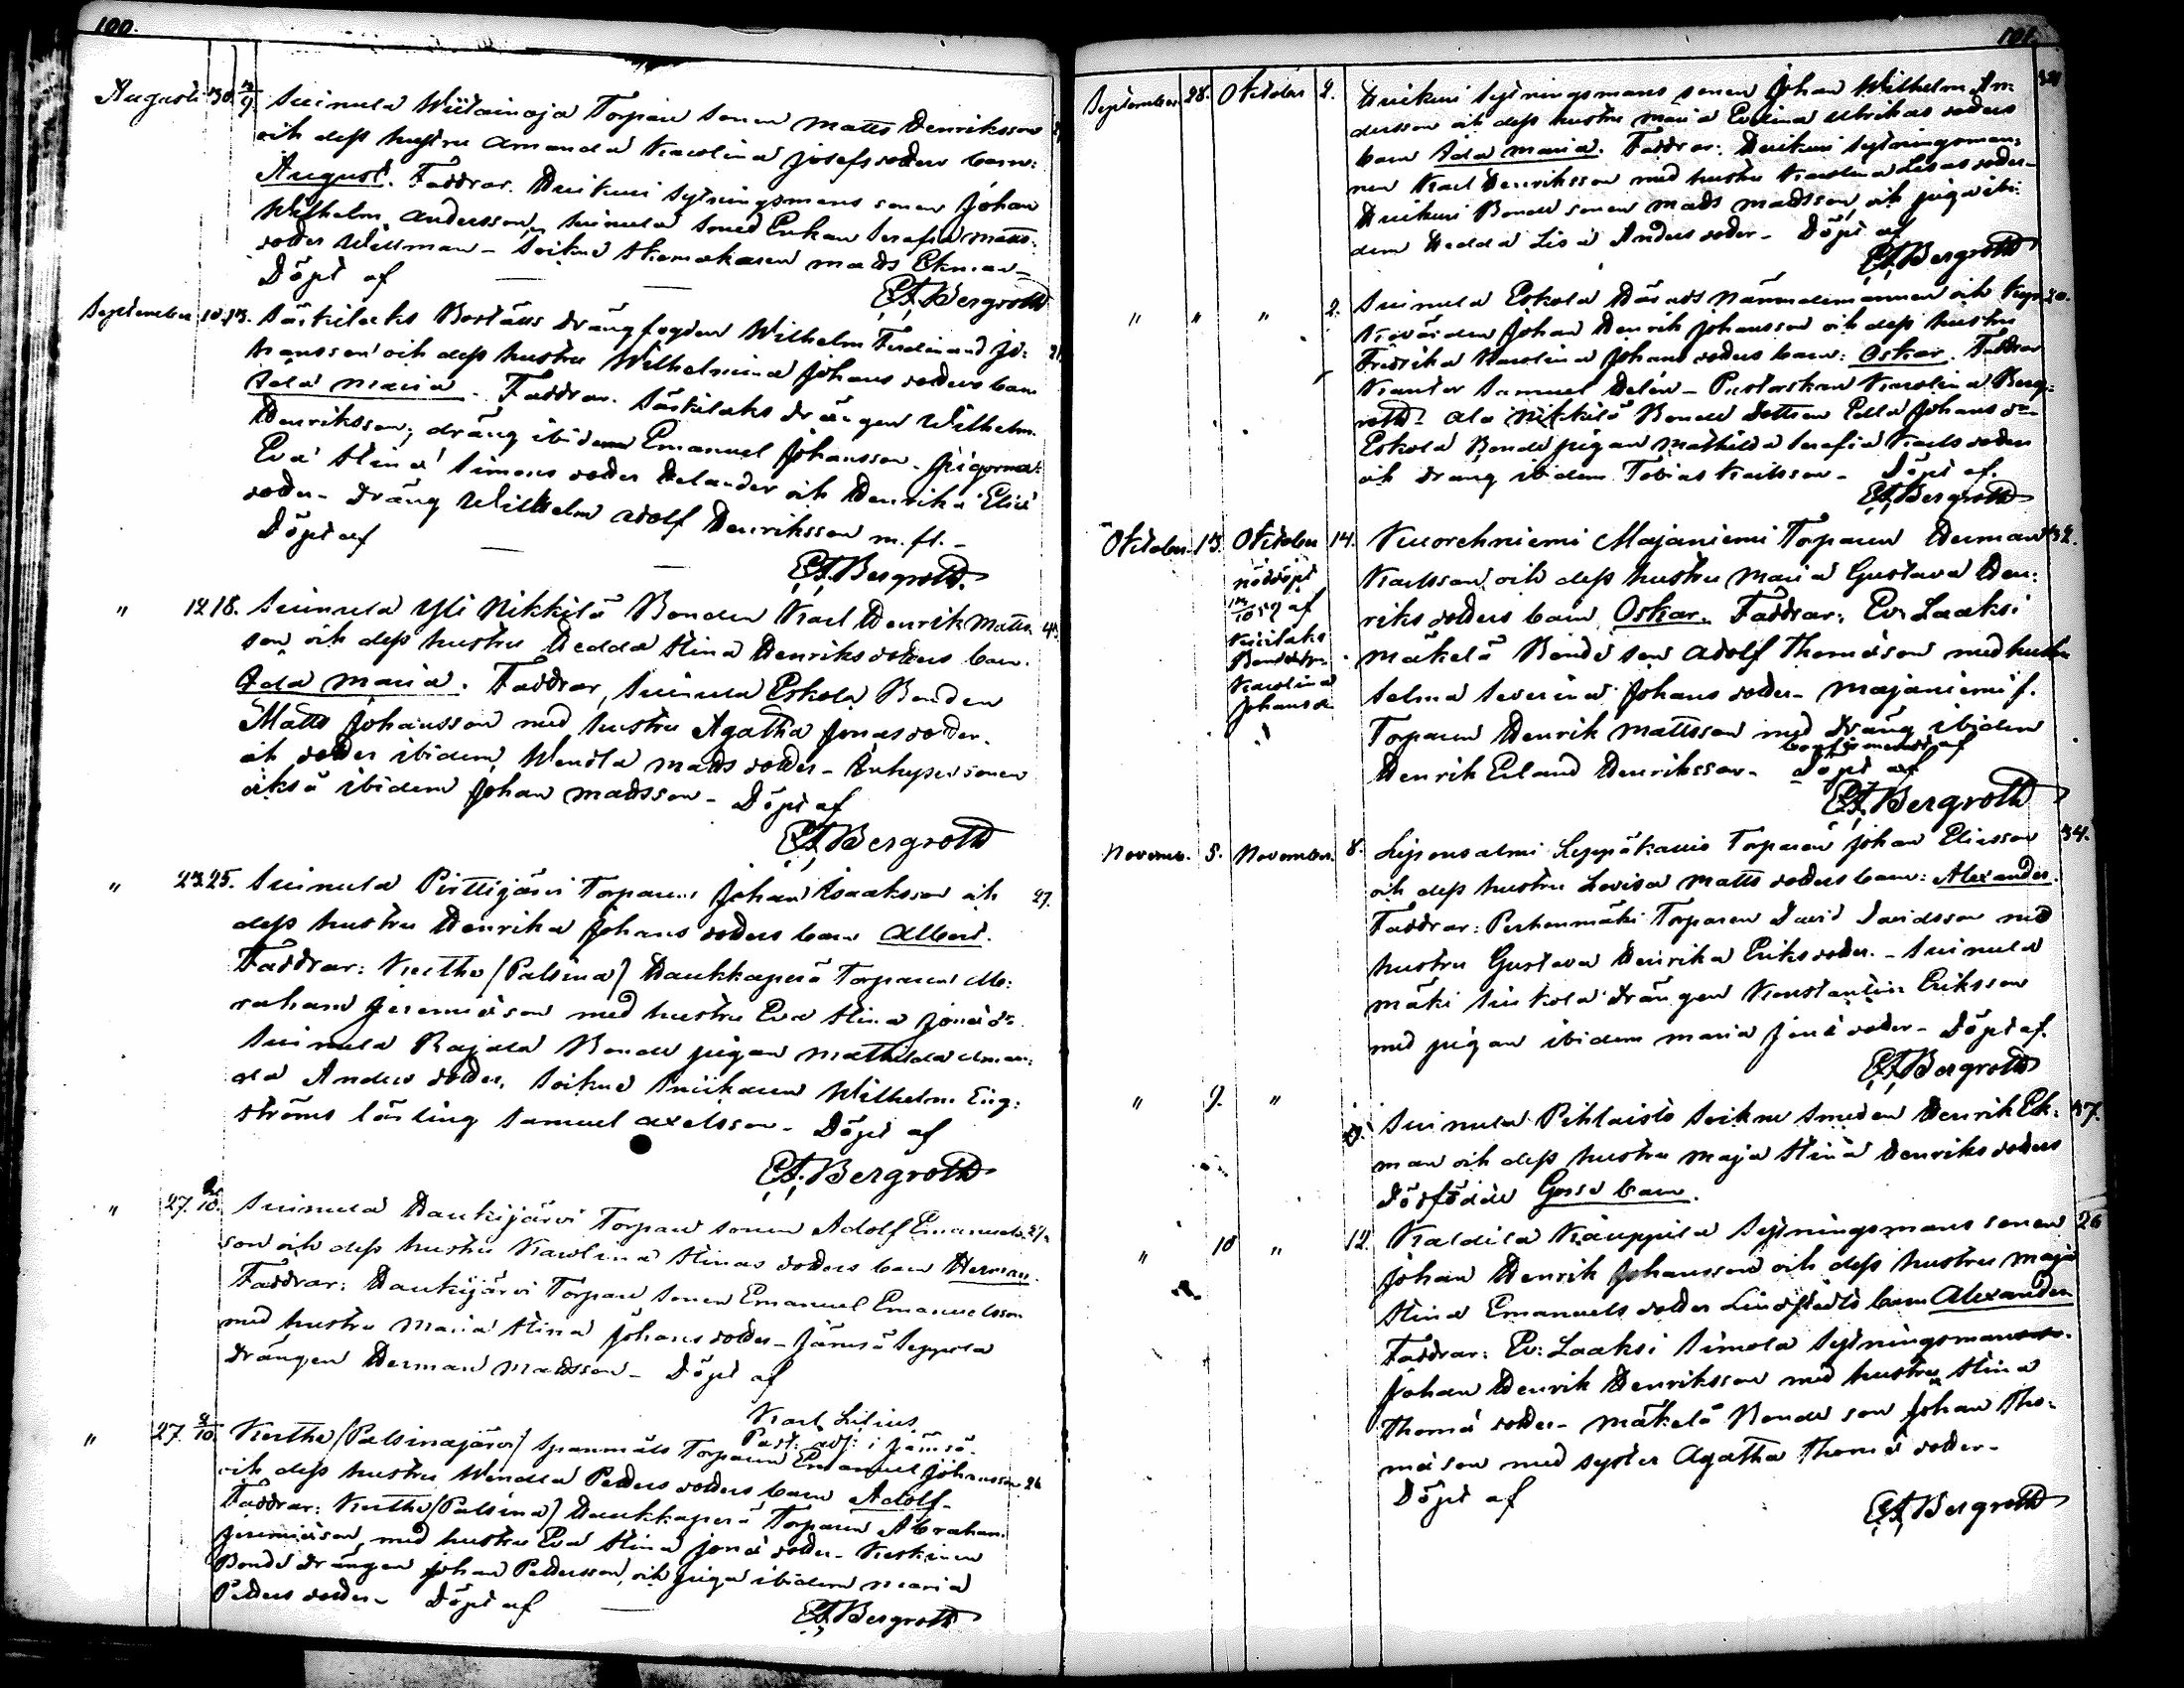 100.
Augusti 30. 2/9. Suinula Wiitainoja Torpare sonen Matts Henriksson
och dess hustru Amanda Karolina Josefsdotters barn:
August. Faddrar. Huikuri Sytningsmans sonen Johan
Wilhelm Andersson, Suinula smed Enkan Serafia Matts-
dotter Willman – Sockne Skomakaren Mats Ekman –
Döpt af
E.A. Bergroth
September 10. 13. Särkilaks Boställs drängfogden Wilhelm Ferdinand Jo-
hansson och dess hustru Wilhelmina Johans dotters barn
Ida Maria. Faddrar. Särkilaks drängen Wilhelm
Henriksson, dräng ibidem Emanuel Johansson. Pigorna:
Eva Stina Simons dotter Helander och Henrika Eliæ
dotter – Dräng Wilhelm Adolf Henriksson m. fl. –
Döpt af
E.A. Bergroth.
" 12 18. Suinula Yli Nikkilä Bonden Karl Henrik Matts-
son och dess hustru Hedda Stina Henriksdotters barn.
Ida Maria. Faddrar, Suinula Eskola Bonden
Matts Johansson med hustru Agatha Jonæ dotter.
och dotter ibidem Wendla Mats dotter – Inhyses sonen
också ibidem Johan Matsson – Döpt af
E.A. Bergroth
" 23. 25. Suinula Pirttijärvi Torparen Johan Isaaksson och 27.
dess hustru Henrika Johans dotters barn Albert.
Faddrar: Kertte (Palsina) Haukkaperä Torparen Ab-
raham Jeremiæson med hustru Eva Stina Jonæ dr.
Suinula Rajala Bonde pigan Mathilda Aman-
da Anders dotter. Sockne Snickaren Wilhelm Eng-
ströms lärling Samuel Axelsson – Döpt af
E.A. Bergroth
" 27. 2/10. Suinula Haukijärvi Torpare sonen Adolf Emanuels-
son och dess hustru Karolina Stinas dotters barn Herman.
Faddrar: Haukijärvi Torpare sonen Emanuel Emanuelsson
med hustru Maria Stina Johans dotter – Jämsä Seppola
drängen Herman Matsson – Döpt af
Karl Lilius
Past: adj: i Jämsä.
" 27. 2/10. Kertte (Palsinajärvi) Spanmäls Torparen Emanuel Johansson 26
och dess hustru Wendla Petters dotters barn Adolf –
Faddrar: Kertte (Palsina) Haukkaperä Torparen Abraham
Jeremiæson med hustru Eva Stina Jonæ dotter – Keskinen
Bonde drängen Johan Pettersson, och piga ibidem Maria
Petters dotter – Döpt af
E.A. Bergroth
101.
September 28. Oktober 2. Huikuri Sytningsmans sonen Johan Wilhelm An-
dersson och dess hustru Maria Evelina Ulrikas dotters
barn Ida Maria. Faddrar: Huikuri Sytningsman-
nen Karl Henriksson med hustru Karolina Lisas dotter –
Huikuri Bonde sonen Mats Matsson och piga ibi-
dem Hedda Lisa Anders dotter – Döpt af
E.A. Bergroth
" " " 2. Suinula Eskola Härads Nämndemannen och Kyrko
Kovärden Johan Henrik Johansson och dess hustru
Fredrika Karolina Johans dotters barn: Oskar. Faddrar
Kantor Samuel Helén – Pastorskan Karolina Berg-
roth – Ala Nikkilä Bonde dottren Edla Johans dr
Eskola Bonde pigan Mathilda Serafia Karls dotter
och dräng ibidem Tobias Karlsson – Döpt af.
E.A. Bergroth
Oktober. 13. Oktober 14. Kuorehniemi Majaniemi Torparen Herman 32.
nöddöpt Karlsson och dess hustru Maria Gustava Hen-
af riks dotters barn Oskar. Faddrar: Ev. Laaksi
Mäkelä Bonde son Adolf Thomæson med hustru
Karolina Selma Severina Johans dotter – Majaniemi f.
Johans dr Torparen Henrik Mattsson med dräng ibidem
Henrik Erland Henriksson – Döpt af
E.A. Bergroth
Novemb. 5. November. 8. Liponsalmi Leppäkanis Torparen Johan Eliasson 34.
och dess hustru Lovisa Matts dotters barn: Alexander.
Faddrar: Perhonmäki Torparen David Davidsson med
hustru Gustava Henrika Eriks dotter. – Suinula
mäki Sirkola drängen Konstantin Eriksson
med pigan ibidem Maria Jonæ dotter – Döpt af.
E.A. Bergroth
" 9. " Suinula Pihlaisto Sockne Smeden Henrik Ek- 37.
man och dess hustru Maja Stina Henriks dotters
Dödfödde Gosse barn.
" 10 " 12. Kaldila Kauppila Sytningsmans sonen 26
Johan Henrik Johansson och dess hustru Maja
Stina Emanuels dotter Lindstedts barn Alexander
Faddrar: Ev: Laaksi Simola Sytningsman
Johan Henrik Henriksson med hustru Stina
Thomæ dotter – Mäkelä Bonde son Johan Tho-
mæson med syster Agatha Thomæ dotter –
Döpt af
E.A. Bergroth